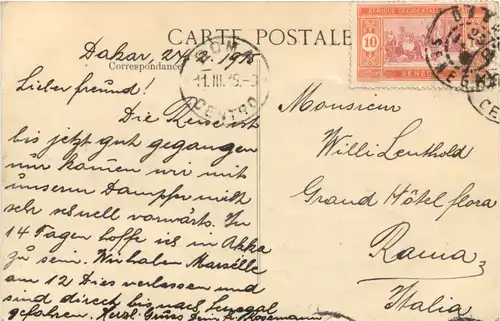 CARTE POSTALE
Correspondance
Dakar, 24/2. 1915
Lieber freund!
Die Reise ist
bis jetzt gut gegangen
nur kamen wir mit
unserm Dampfer nicht
sehr schnell vorwärts. In
14 Tagen hoffe ich in Akka
zu sein. Wir haben Marseille
am 12 Dies verlassen und
sind direct bis nach Senegal
gefahren. Herzl. Gruss
Monsieur
Willi Leuthold
Grand Hôtel flora
Roma
Italia
AFRIQUE OCCIDENTALE
10
10
SENEGAL
ROMA
11.III.15
CENTRO